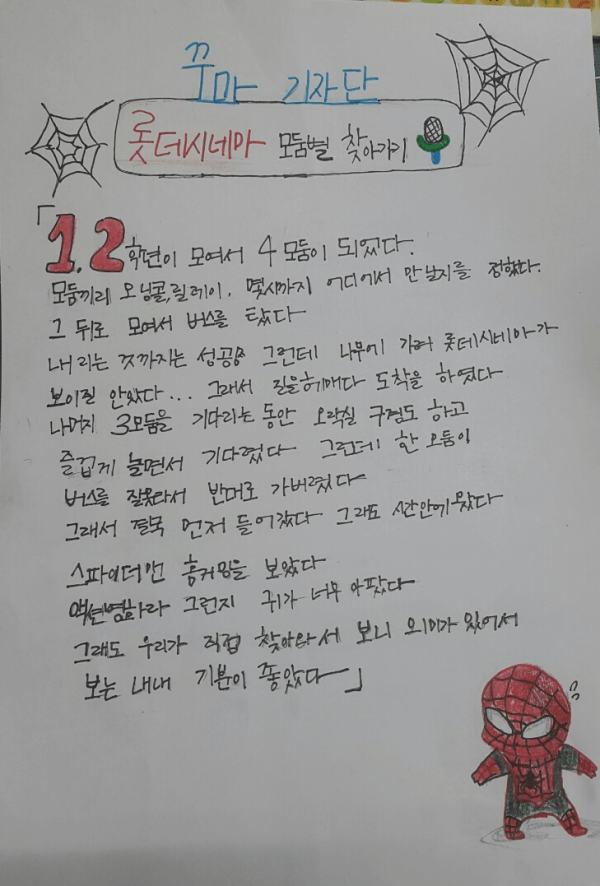 꾸마 기자단
롯데시네마 모둠별 찾아가기
「1.2학년이 모여서 4모둠이 되었다.
모둠끼리 모닝콜, 릴레이, 몇시까지 어디에서 만날지를 정했다.
그 뒤로 모여서 버스를 탔다
내리는 것까지는 성공 그런데 나무에 가려 롯데시네마가
보이질 안았다... 그래서 길을 헤매다 도착을 하였다
나머지 3모둠을 기다리는 동안 오락실 구경도 하고
즐겁게 놀면서 기다렸다 그런데 한 모둠이
버스를 잘못타서 반대로 가버렸다
그래서 결국 먼저 들어갔다 그래도 시간안에 왔다
스파이더맨 홈커밍을 보았다
액션영화라 그런지 귀가 너무 아팠다
그래도 우리가 직접 찾아와서 보니 의미가 있어서
보는 내내 기분이 좋았다」